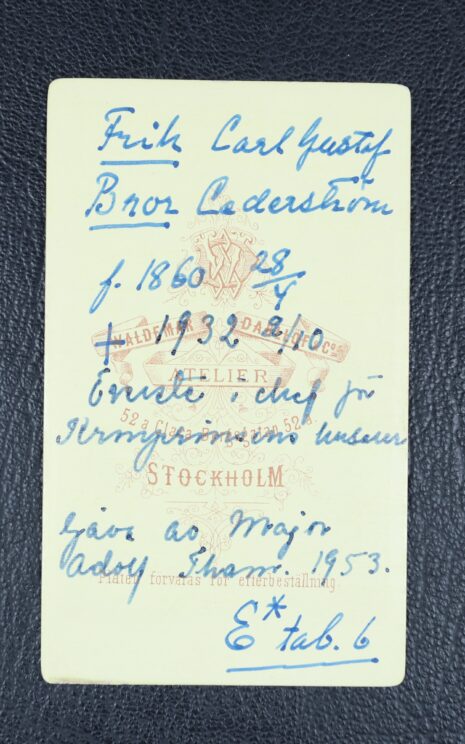 Frih Carl Gustaf
Bror Cederström
f. 1860 28/4
WALDEMAR DAHLLÖF & Co.
+ 1932 2/10
ATELIER
Överste i chef för
52 a Clara Bergsgatan 52 a
Kronprinsens husarer
STOCKHOLM
Gåva av Major
Adolf Tham. 1953.
Plåten förvaras för efterbeställning.
E* tab. 6